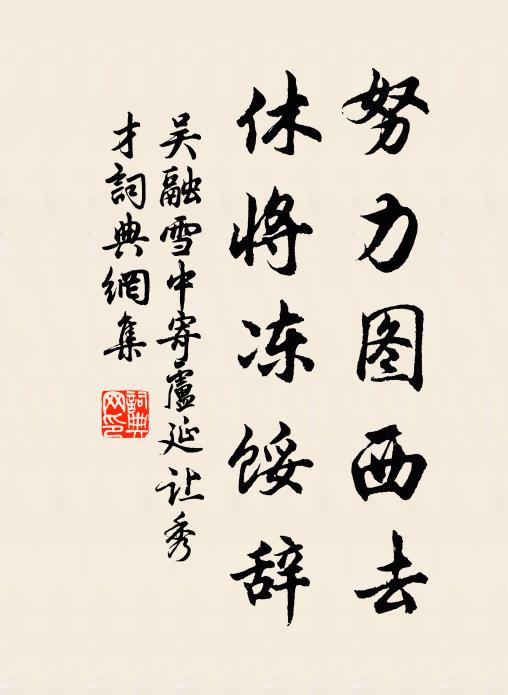 努力图西去
休将冻馁辞
吴融雪中寄盧延让秀
才詞典網集
詞典网印